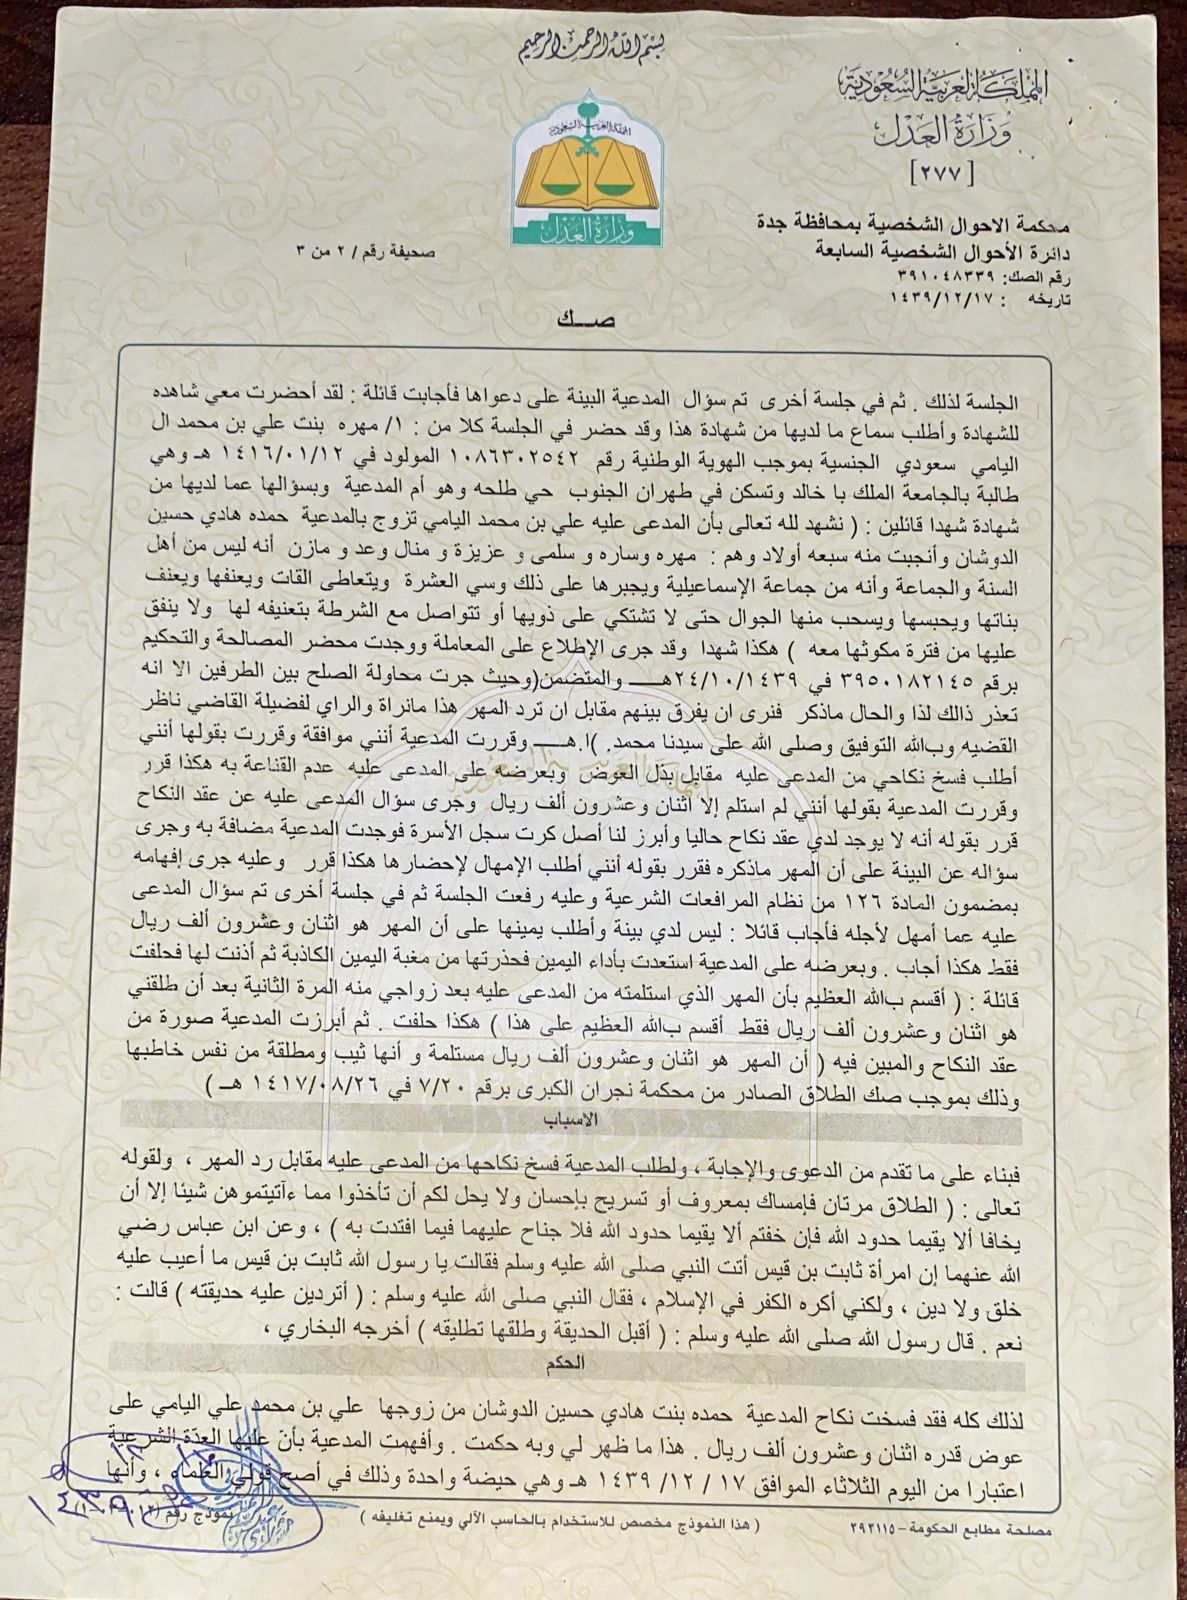 بسم الله الرحمن الرحيم
المملكة العربية السعودية
وزارة العدل
[٢٧٧]
المملكة العربية السعودية
وزارة العدل
محكمة الاحوال الشخصية بمحافظة جدة
دائرة الأحوال الشخصية السابعة
رقم الصك: ٣٩١٠٤٨٣٣٩
تاريخه : ١٤٣٩/١٢/١٧
صحيفة رقم / ٢ من ٣
صـــك
الجلسة لذلك . ثم في جلسة أخرى تم سؤال المدعية البينة على دعواها فأجابت قائلة : لقد أحضرت معي شاهده
للشهادة وأطلب سماع ما لديها من شهادة هذا وقد حضر في الجلسة كلا من : ١/ مهره بنت علي بن محمد ال
اليامي سعودي الجنسية بموجب الهوية الوطنية رقم ١٠٨٦٣٠٢٥٤٢ المولود في ١٤١٦/٠١/١٢ هـ وهي
طالبة بالجامعة الملك با خالد وتسكن في طهران الجنوب حي طلحه وهو أم المدعية وبسؤالها عما لديها من
شهادة شهدا قائلين : ( نشهد لله تعالى بأن المدعى عليه علي بن محمد اليامي تزوج بالمدعية حمده هادي حسين
الدوشان وأنجبت منه سبعه أولاد وهم : مهره وساره و سلمى و عزيزة و منال وعد و مازن أنه ليس من أهل
السنة والجماعة وأنه من جماعة الإسماعيلية ويجبرها على ذلك وسي العشرة ويتعاطى القات ويعنفها ويعنف
بناتها ويحبسها ويسحب منها الجوال حتى لا تشتكي على ذويها أو تتواصل مع الشرطة بتعنيفه لها ولا ينفق
عليها من فترة مكوثها معه ) هكذا شهدا وقد جرى الإطلاع على المعاملة ووجدت محضر المصالحة والتحكيم
برقم ٣٩٥٠١٨٢١٤٥ في ٢٤/١٠/١٤٣٩هـــ والمتضمن(وحيث جرت محاولة الصلح بين الطرفين الا انه
تعذر ذالك لذا والحال ماذكر فنرى ان يفرق بينهم مقابل ان ترد المهر هذا مانراة والراي لفضيلة القاضي ناظر
القضيه وبالله التوفيق وصلى الله على سيدنا محمد. )ا.هـــ وقررت المدعية أنني موافقة وقررت بقولها أنني
أطلب فسخ نكاحي من المدعى عليه مقابل بذل العوض وبعرضه على المدعى عليه عدم القناعة به هكذا قرر
وقررت المدعية بقولها أنني لم استلم إلا اثنان وعشرون ألف ريال وجرى سؤال المدعى عليه عن عقد النكاح
قرر بقوله أنه لا يوجد لدي عقد نكاح حاليا وأبرز لنا أصل كرت سجل الأسرة فوجدت المدعية مضافة به وجرى
سؤاله عن البينة على أن المهر ماذكره فقرر بقوله أنني أطلب الإمهال لإحضارها هكذا قرر وعليه جرى إفهامه
بمضمون المادة ١٢٦ من نظام المرافعات الشرعية وعليه رفعت الجلسة ثم في جلسة أخرى تم سؤال المدعى
عليه عما أمهل لأجله فأجاب قائلا : ليس لدي بينة وأطلب يمينها على أن المهر هو اثنان وعشرون ألف ريال
فقط هكذا أجاب . وبعرضه على المدعية استعدت بأداء اليمين فحذرتها من مغبة اليمين الكاذبة ثم أذنت لها فحلفت
قائلة : ( أقسم بالله العظيم بأن المهر الذي استلمته من المدعى عليه بعد زواجي منه المرة الثانية بعد أن طلقني
هو اثنان وعشرون ألف ريال فقط أقسم بالله العظيم على هذا ) هكذا حلفت . ثم أبرزت المدعية صورة من
عقد النكاح والمبين فيه ( أن المهر هو اثنان وعشرون ألف ريال مستلمة و أنها ثيب ومطلقة من نفس خاطبها
وذلك بموجب صك الطلاق الصادر من محكمة نجران الكبرى برقم ٧/٢٠ في ١٤١٧/٠٨/٢٦ هــ )
الاسباب
فبناء على ما تقدم من الدعوى والإجابة ، ولطلب المدعية فسخ نكاحها من المدعى عليه مقابل رد المهر ، ولقوله
تعالى : ( الطلاق مرتان فإمساك بمعروف أو تسريح بإحسان ولا يحل لكم أن تأخذوا مما ءآتيتموهن شيئا إلا أن
يخافا ألا يقيما حدود الله فإن خفتم ألا يقيما حدود الله فلا جناح عليهما فيما افتدت به ) ، وعن ابن عباس رضي
الله عنهما إن امرأة ثابت بن قيس أتت النبي صلى الله عليه وسلم فقالت يا رسول الله ثابت بن قيس ما أعيب عليه
خلق ولا دين ، ولكني أكره الكفر في الإسلام ، فقال النبي صلى الله عليه وسلم : ( أتردين عليه حديقته ) قالت :
نعم . قال رسول الله صلى الله عليه وسلم : ( أقبل الحديقة وطلقها تطليقه ) أخرجه البخاري ،
الحكم
لذلك كله فقد فسخت نكاح المدعية حمده بنت هادي حسين الدوشان من زوجها علي بن محمد علي اليامي على
عوض قدره اثنان وعشرون ألف ريال . هذا ما ظهر لي وبه حكمت . وأفهمت المدعية بأن عليها العدّة الشرعية
اعتبارا من اليوم الثلاثاء الموافق ١٧ / ١٢/ ١٤٣٩ هـ وهي حيضة واحدة وذلك في أصح قولي العلماء ، وأنها
مصلحة مطابع الحكومة – ٣٩٣١١٥
( هذا النموذج مخصص للاستخدام بالحاسب الآلي ويمنع تغليفه )
نموذج رقم